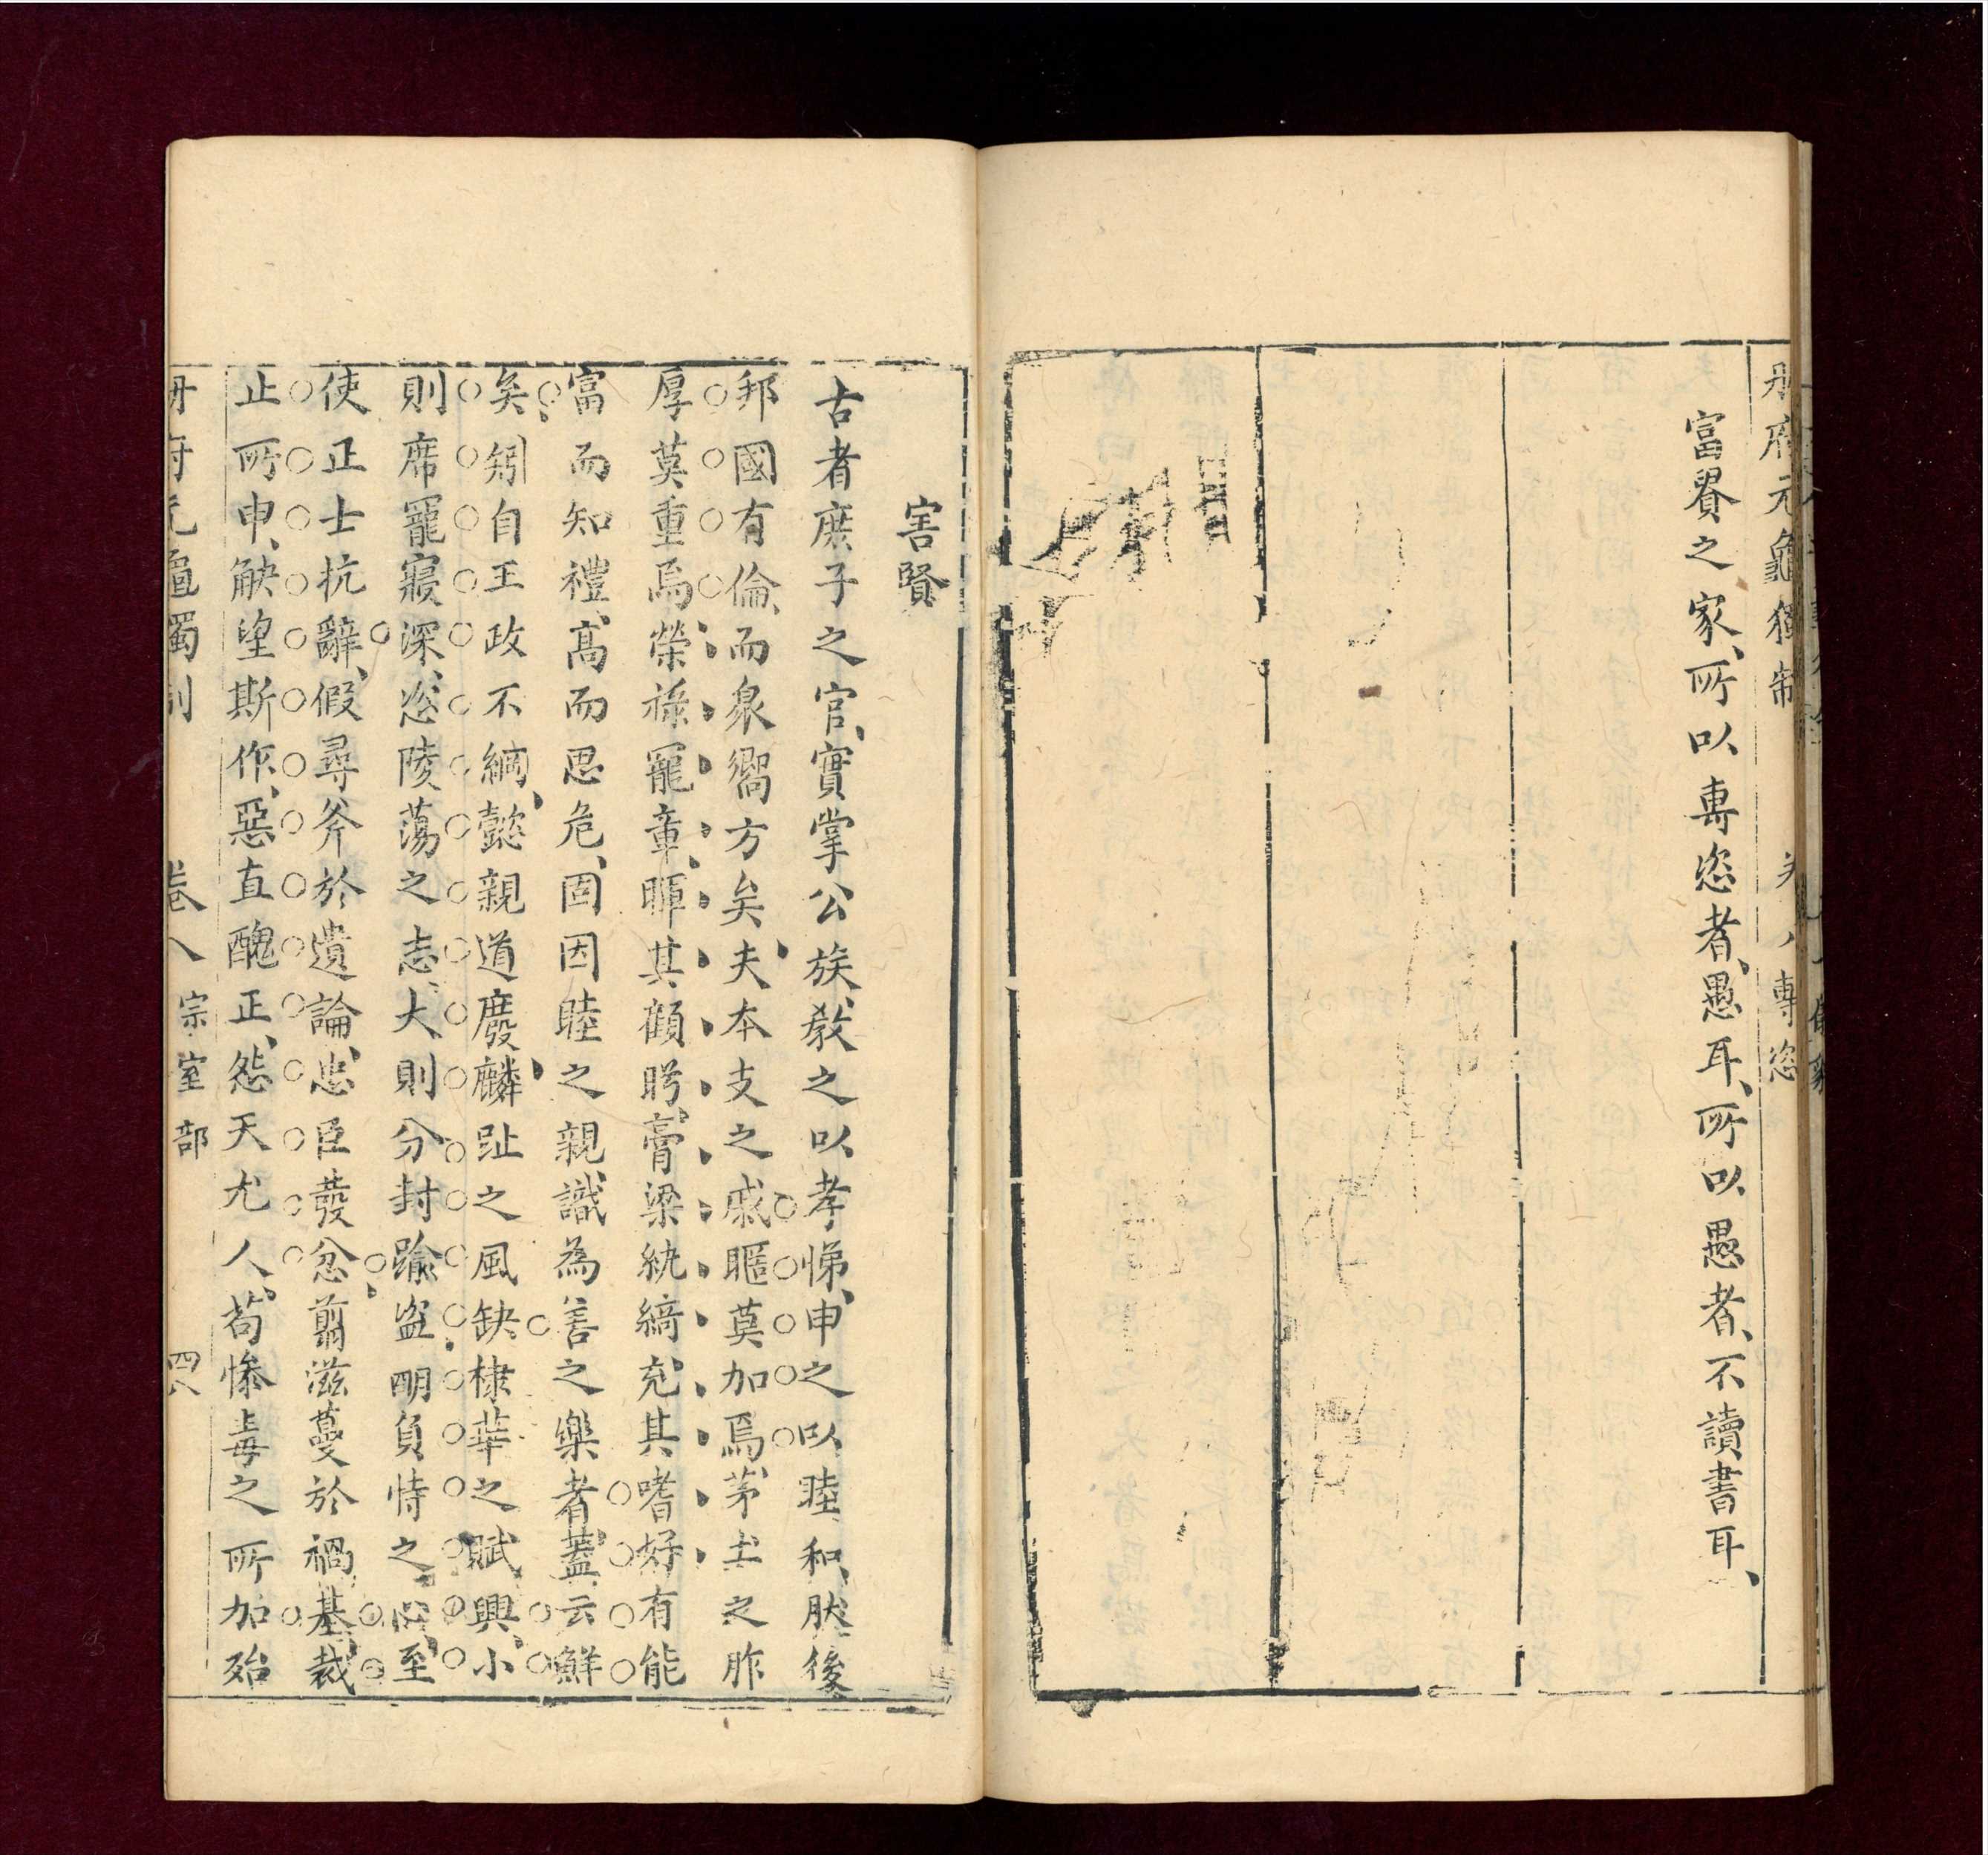 册府元龜獨制 卷八專恣
富貴之家、所以專恣者、愚耳、所以愚者、不讀書耳、
害賢
古者庶子之官、實掌公族、敎之以孝悌、申之以睦和、肰後
邦國有倫、而衆嚮方矣、夫本支之戚、暱莫加焉、茅土之胙
厚莫重焉、榮祿寵章、暉其顧眄、膏粱紈綺、充其嗜好、有能
富而知禮、高而思危、固因睦之親、識為善之樂者、蓋云鮮
矣、矧自王政不綱、懿親道廢、麟趾之風缺、棣華之賦興、小
則席寵寢深、恣陵蕩之志、大則分封踰盜、明負恃之心、至
使正士抗辭、假尋斧於遺論、忠臣發忿、翦滋蔓於禍基、裁
止所申、觖望斯作、惡直醜正、怨天尤人、苟慘毒之所加、殆
册府元龜獨制 卷八 宗室部 四八